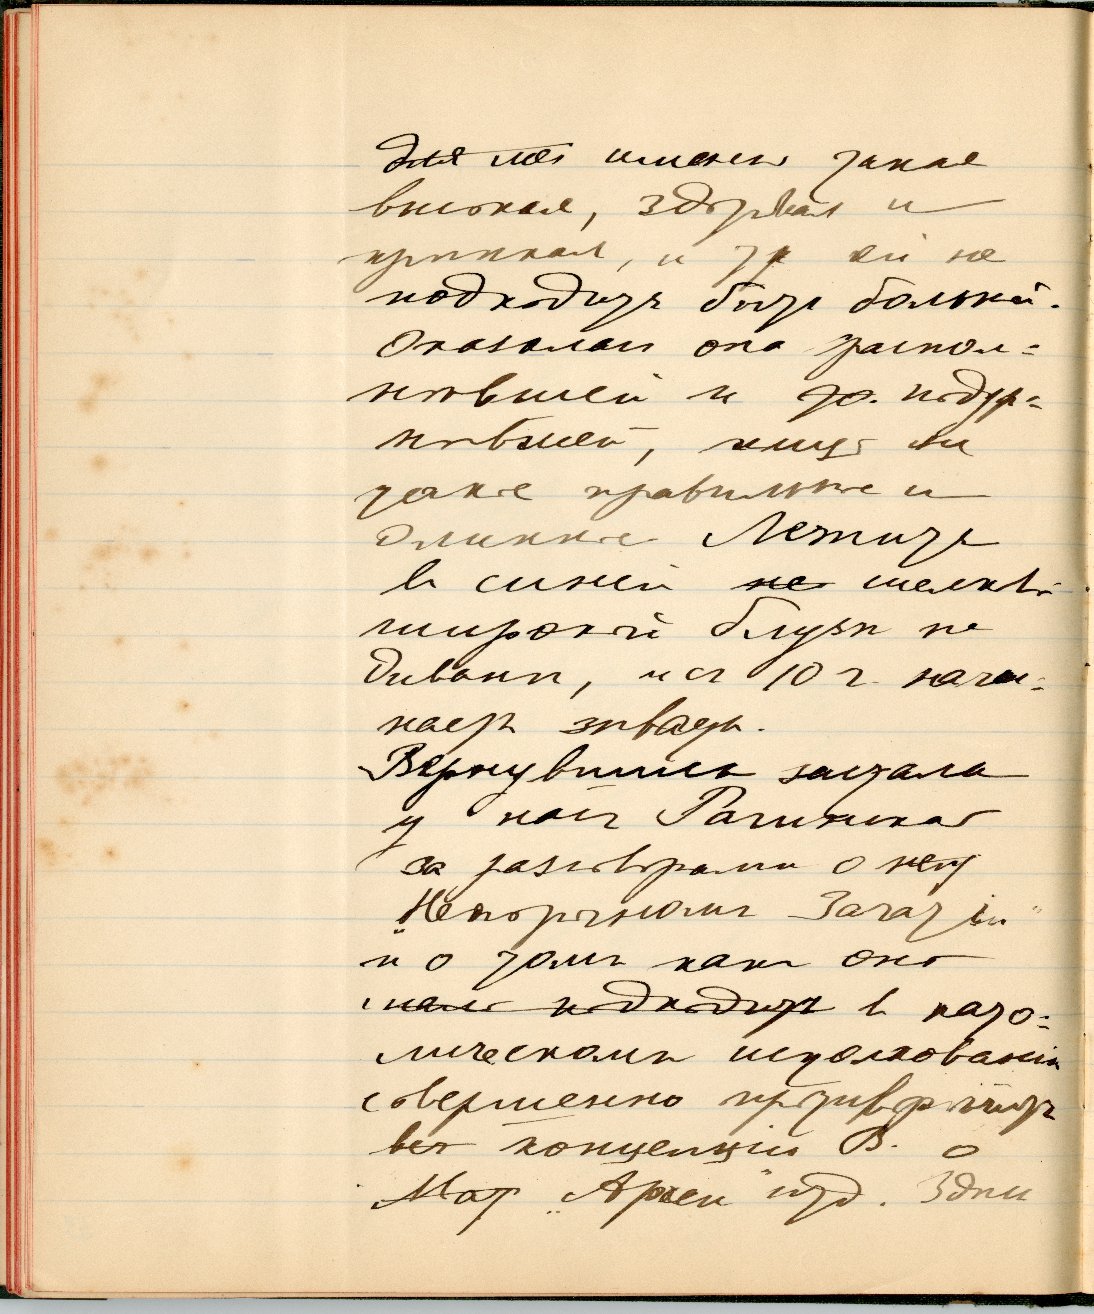 для нея именно такая
высокая, здоровая и
крупная, и ей не
подходитъ быть больной.
Оказалась она распол-
нѣвшей и подур-
нѣвшей, хотя
такіе правильные и
длинные Лежитъ
въ синей шелков
широкой блузѣ на
диванѣ, и съ 10 ч. начи-
наетъ зѣвать.
Вернувшись застала
у насъ Рачинскаго
за разговорами о
„Непорочномъ Зачатіи“
и о томъ какъ оно
мало подходитъ въ като-
лическомъ истолкованіи
совершенно противорѣчитъ
всѣ концепціи В. о
Мат